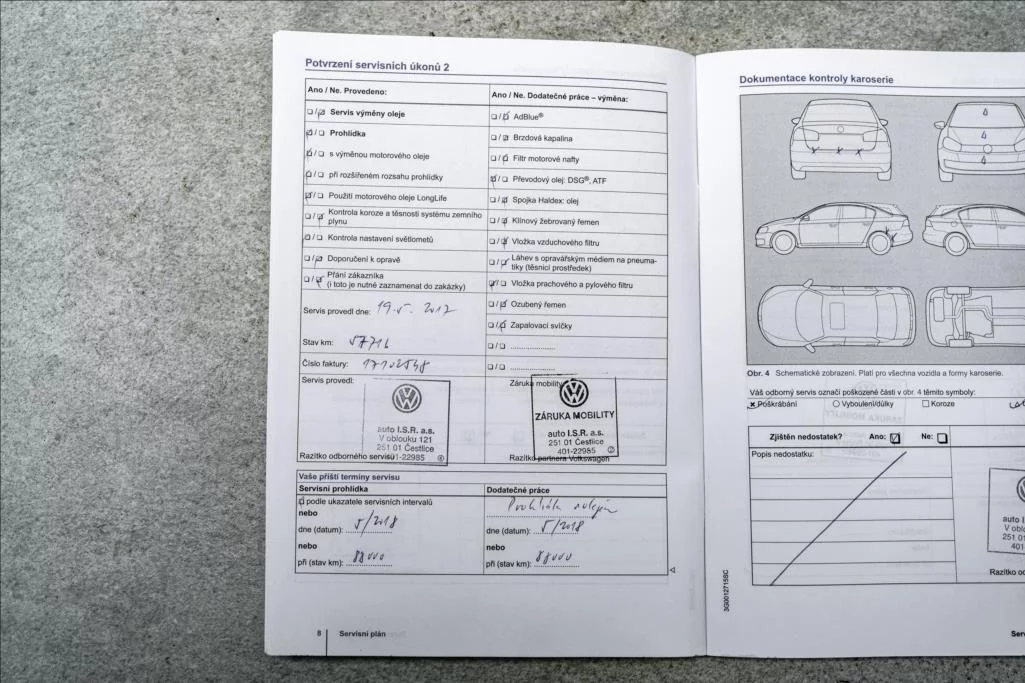 Potvrzení servisních úkonů 2
Ano / Ne. Provedeno:
Servis výměny oleje
Prohlídka
s výměnou motorového oleje
při rozšířeném rozsahu prohlídky
Použití motorového oleje LongLife
Kontrola koroze a těsnosti systému zemního
plynu
Kontrola nastavení světlometů
Doporučení k opravě
Přání zákazníka
(i toto je nutné zaznamenat do zakázky)
Servis provedl dne: 19.5. 2017
Stav km: 57716
Číslo faktury: 17102548
Servis provedl:
auto I.S.R. a.s.
V oblouku 121
251 01 Čestlice
Razítko odborného servisu
Ano / Ne. Dodatečné práce – výměna:
AdBlue®
Brzdová kapalina
Filtr motorové nafty
Převodový olej: DSG®, ATF
Spojka Haldex: olej
Klínový žebrovaný řemen
Vložka vzduchového filtru
Láhev s opravářským médiem na pneuma-
tiky (těsnicí prostředek)
Vložka prachového a pylového filtru
Ozubený řemen
Zapalovací svíčky
Záruka mobility
ZÁRUKA MOBILITY
auto I.S.R. a.s.
251 01 Čestlice
401-22985
Razítko partnera Volkswagen
Vaše příští termíny servisu
Servisní prohlídka
podle ukazatele servisních intervalů
nebo
dne (datum): 5/2018
nebo
při (stav km): 88000
Dodatečné práce
dne (datum): 5/2018
nebo
při (stav km): 88000
8 Servisní plán
Dokumentace kontroly karoserie
Obr. 4 Schematické zobrazení. Platí pro všechna vozidla a formy karoserie.
Váš odborný servis označí poškozené části v obr. 4 těmito symboly:
Poškrábání Vyboulení/důlky Koroze
Zjištěn nedostatek? Ano: Ne:
Popis nedostatku:
auto I
V oblo
251 0
401
Razítko od
3G0012715SC
Ser